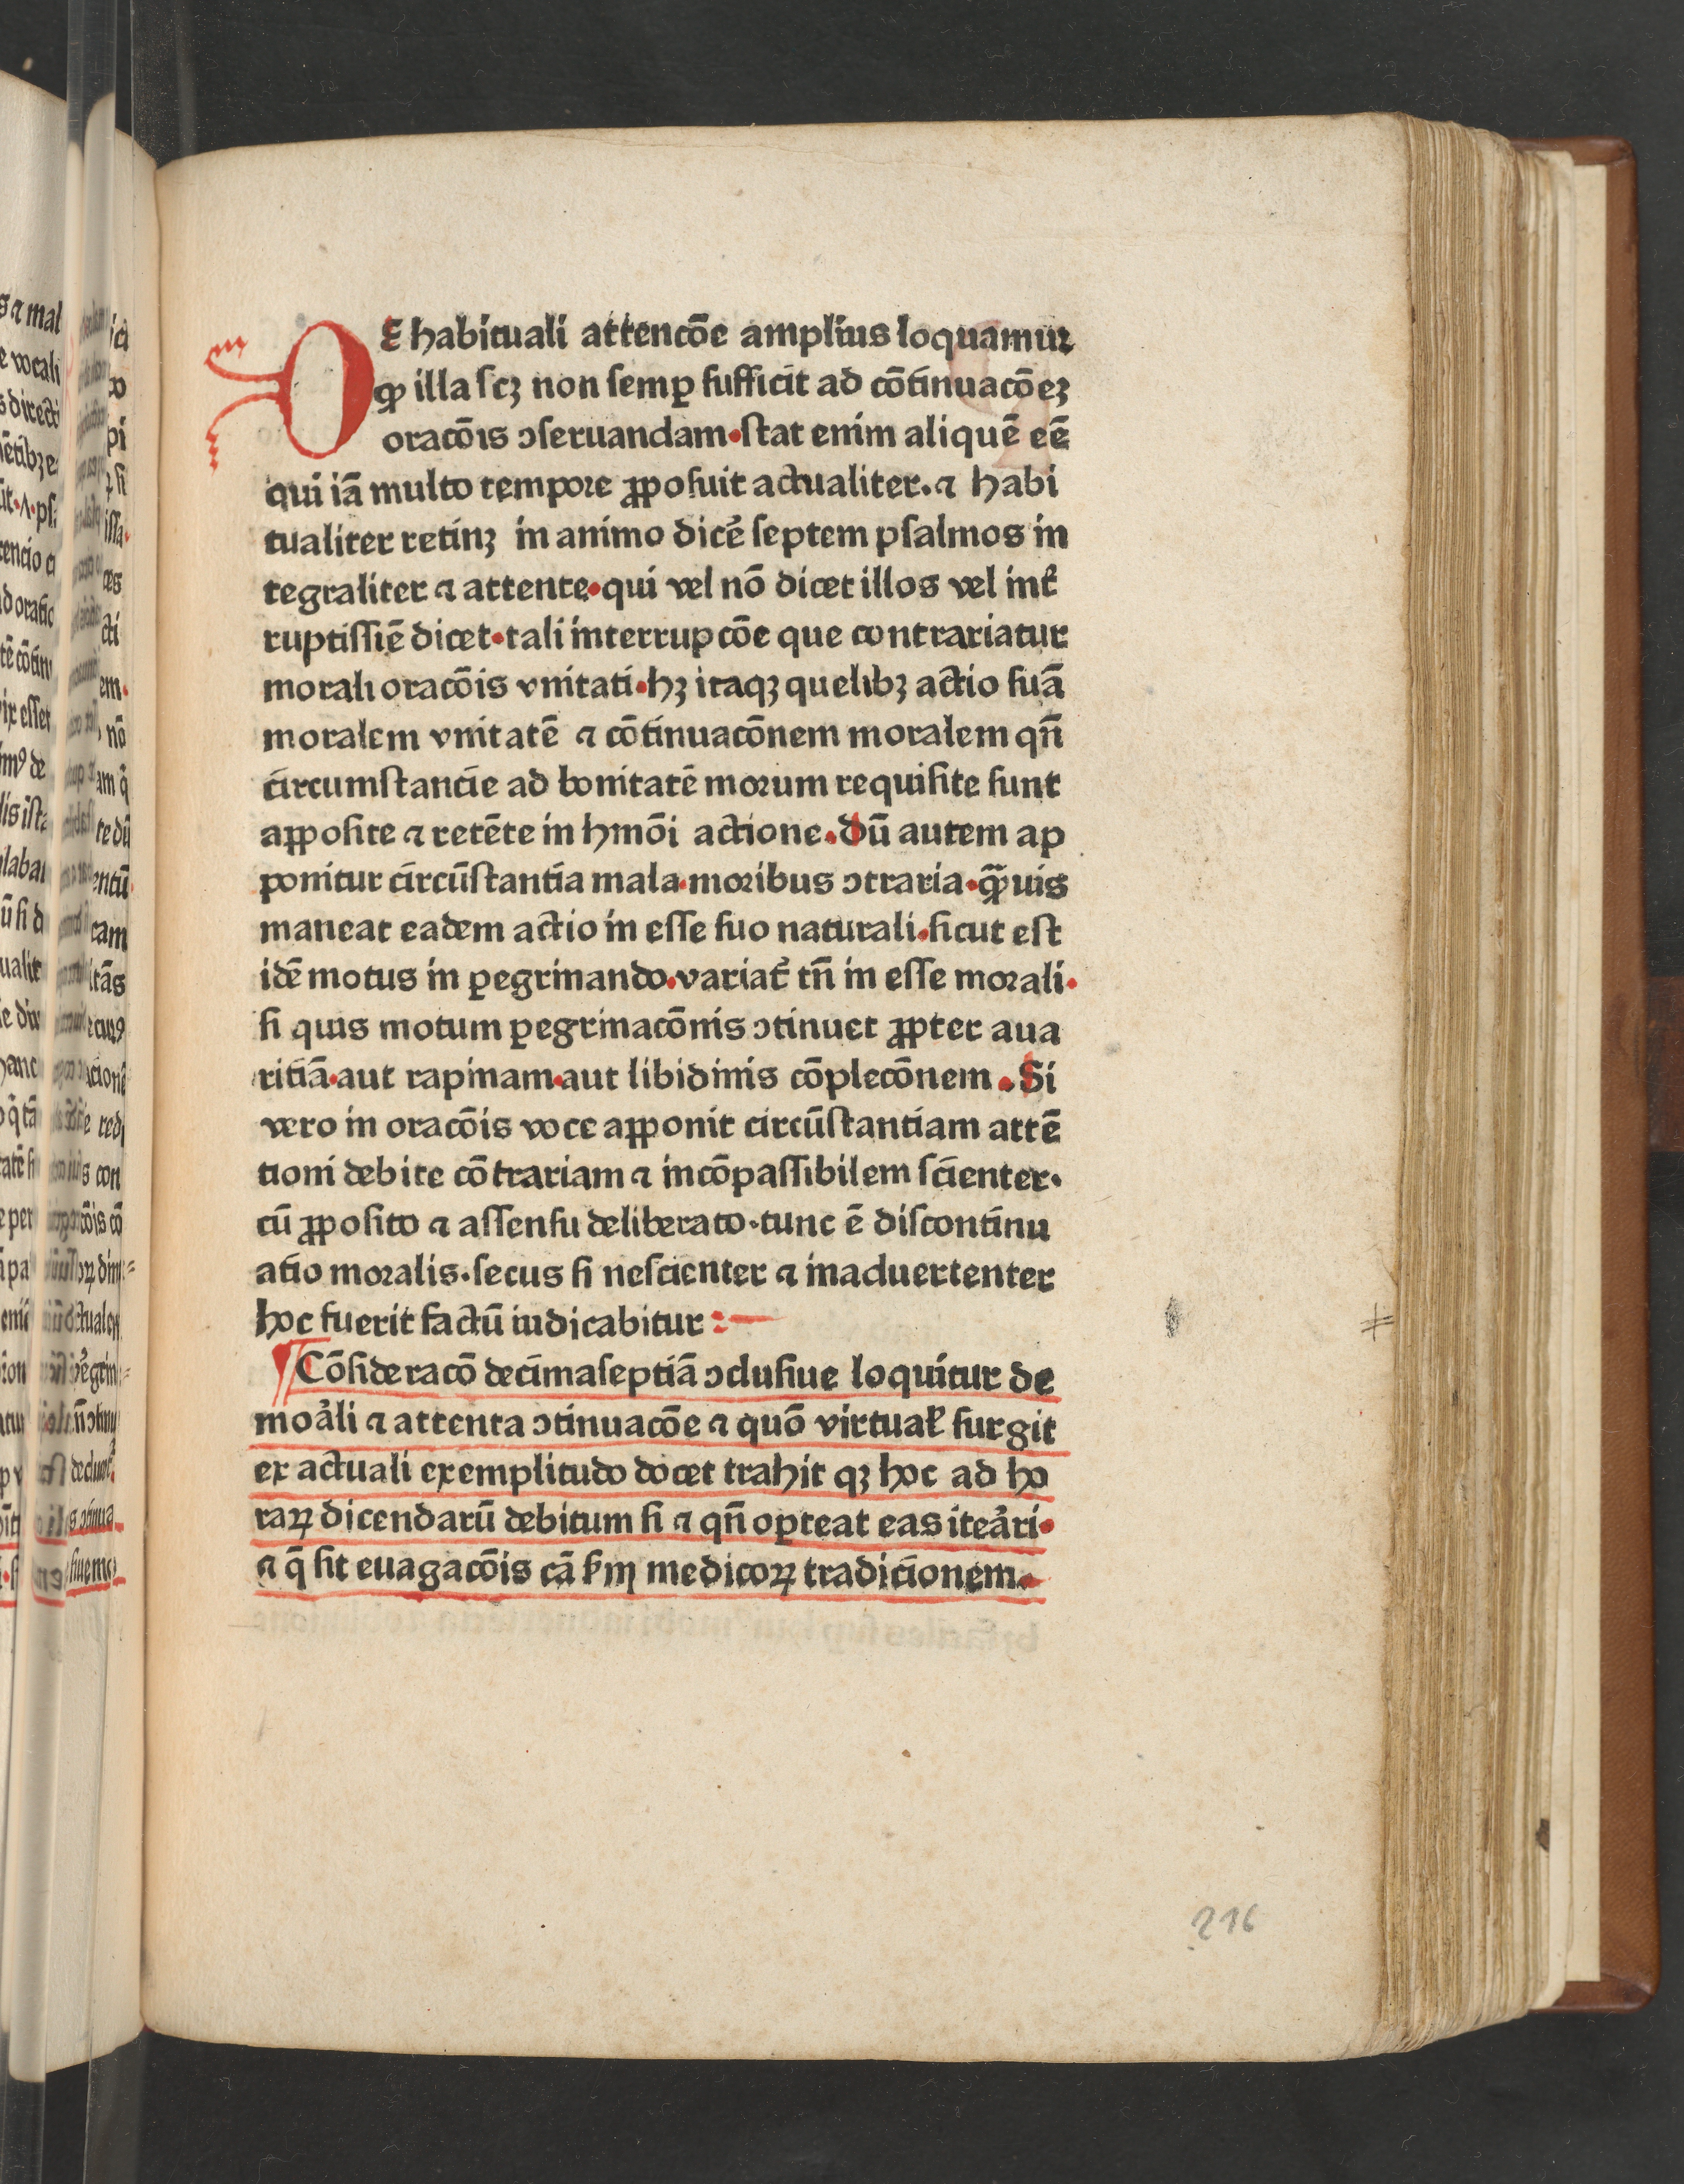 DE habituali attencōe amplius loquamur
ꝙ illa scꝫ non semꝑ sufficit ad cōtinuacōeꝫ
oracōis ɔseruandam·stat enim aliquē eē
qui iā multo tempore ꝓposuit actualiter.⁊ habi
tualiter retinꝫ in animo dicē septem psalmos in
tegraliter ⁊ attente·qui vel nō dicet illos vel int̄
ruptissiē dicet·tali interrupcōe que contrariatur
morali oracōis vnitati·hꝫ itaqꝫ quelibꝫ actio suā
moralem vnitatē ⁊ cōtinuacōnem moralem qn̄
circumstancie ad bonitatē morum requisite sunt
aꝓposite ⁊ retēte in hmōi actione.dū autem ap
ponitur circūstantia mala·moribus ɔtraria·ꝙ̄uis
maneat eadem actio in esse suo naturali·sicut est
idē motus in ꝑegrinando·variat̄ tn̄ in esse morali·
si quis motum ꝑegrinacōnis ɔtinuet ꝓpter aua
ritiā·aut rapinam·aut libidinis cōplecōnem.Si
vero in oracōis voce aꝓponit circūstantiam attē
tioni debite cōtrariam ⁊ incōpassibilem scienter·
cū ꝓposito ⁊ assensu deliberato·tunc ē discontinu
atio moralis·secus si nescienter ⁊ inaduertenter
hoc fuerit factū iudicabitur:—
¶Cōsideracō decimaseptiā ɔclusiue loquitur de
moāli ⁊ attenta ɔtinuacōe ⁊ quō virtual̄ surgit
ex actuali exemplitudo docet trahit qꝫ hoc ad ho
raꝝ dicendarū debitum si ⁊ qn̄ oꝑteat eas iteāri·
⁊ q̄ sit euagacōis cā s̄m medicoꝝ tradicionem.
216